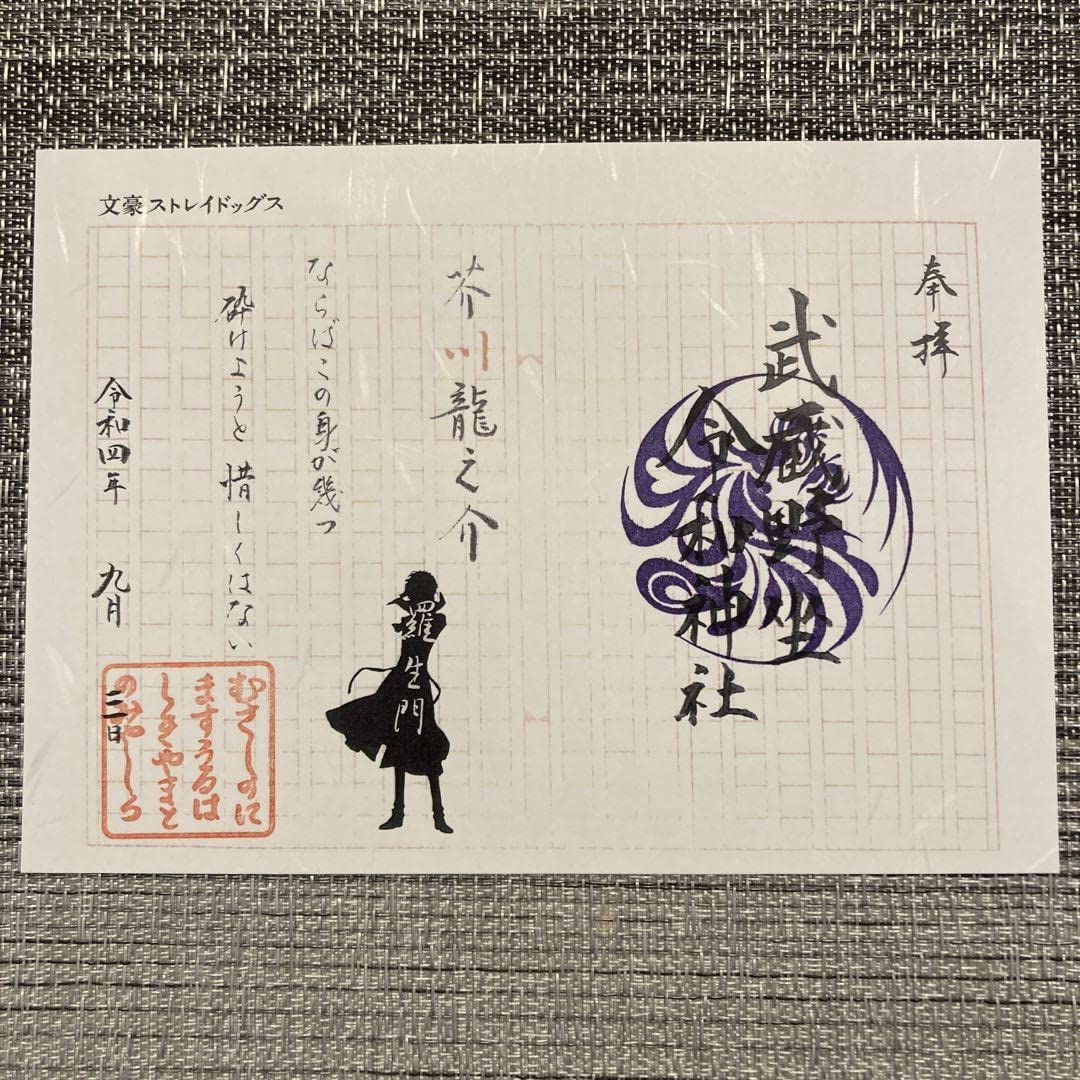 文豪ストレイドッグス
奉拝
武蔵野坐
令和神社
芥川龍之介
羅生門
ならばこの身が幾つ
砕けようと惜しくはない
令和四年 九月 三日
むさしのに
ますうるは
しきやまと
のみやしろ